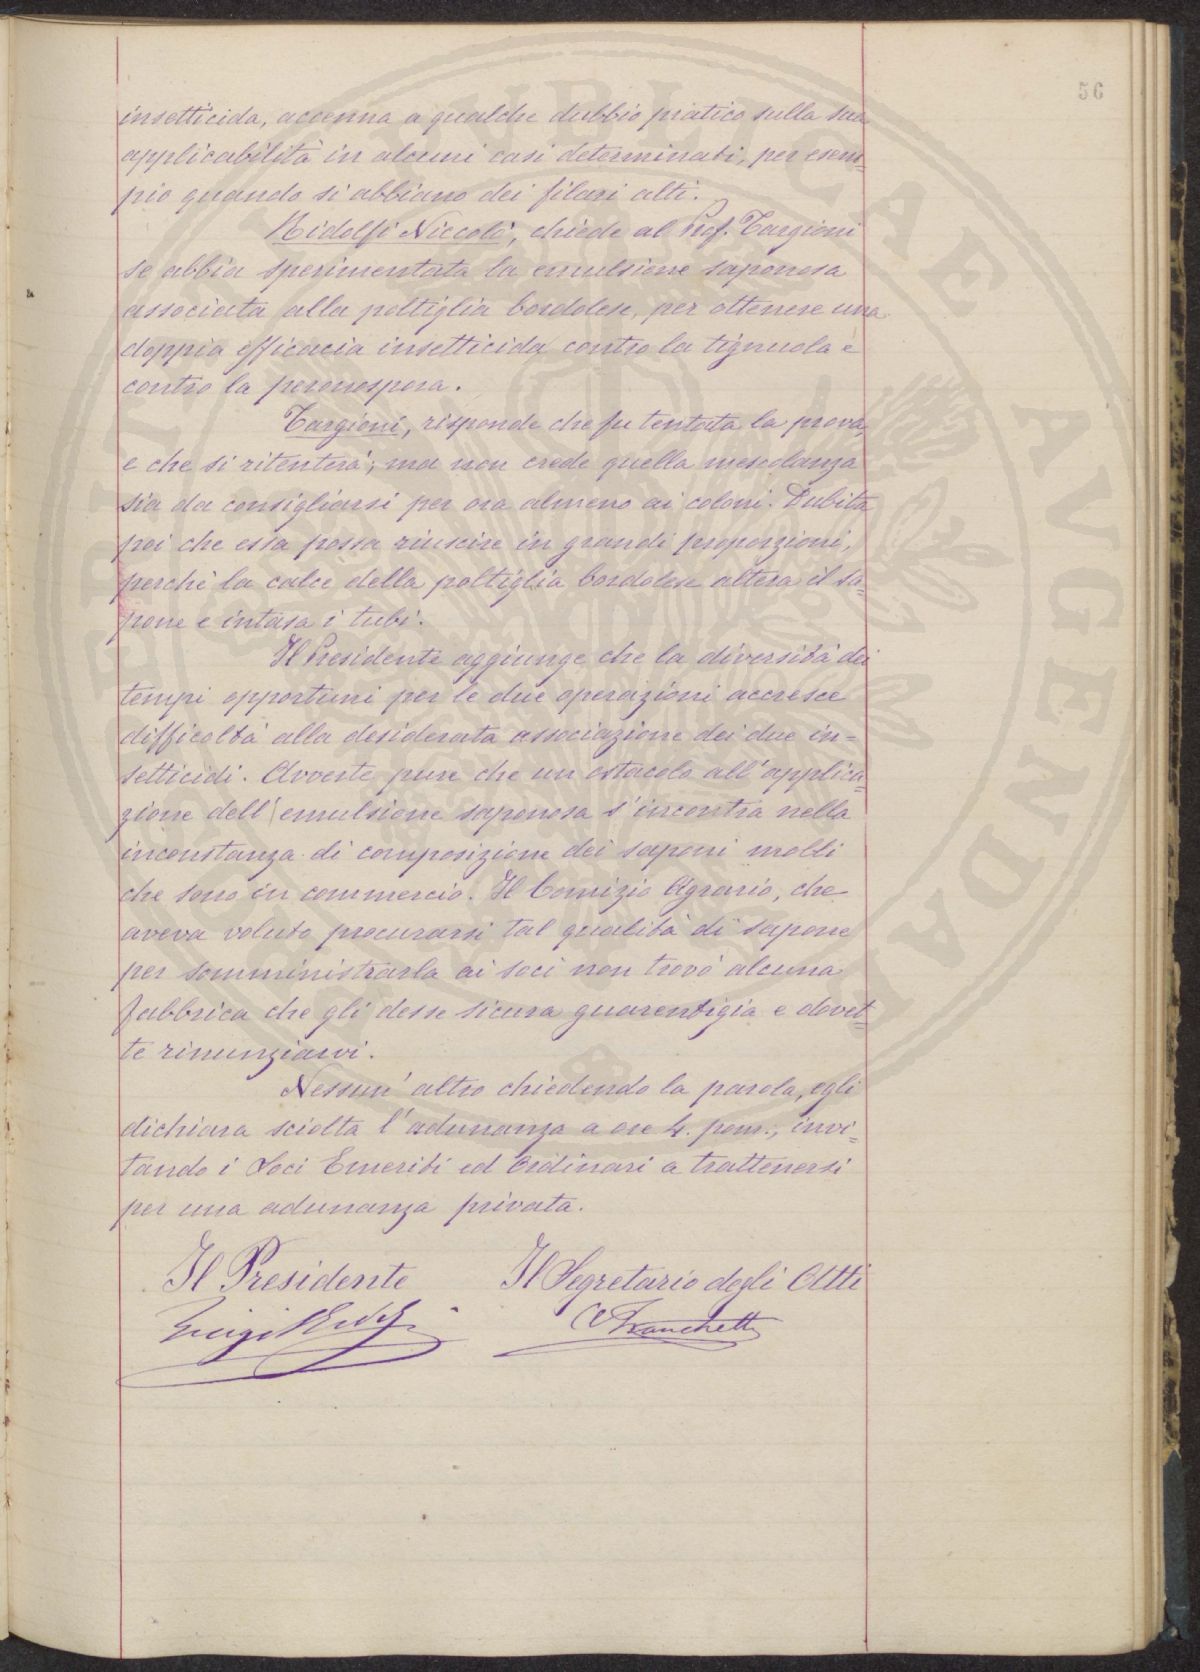 56
insetticida, accenna a qualche dubbio pratico sulla sua
applicabilità in alcuni casi determinati, per esem-
pio quando si abbiano dei filari alti.
Ridolfi Niccolò, chiede al Prof. Targioni
se abbia sperimentata la emulsione saponosa
associata alla poltiglia bordolese, per ottenere una
doppia efficacia insetticida contro la tignuola e
contro la peronospora.
Targioni, risponde che fu tentata la prova,
e che si ritenterà; ma non crede quella mescolanza
sia da consigliarsi per ora almeno ai coloni. Dubita
poi che essa possa riuscire in grandi proporzioni,
perchè la calce della poltiglia bordolese altera il sa-
pone e intasa i tubi.
Il Presidente aggiunge che la diversità dei
tempi opportuni per le due operazioni accresce
difficoltà alla desiderata associazione dei due in=
setticidi. Avverte pure che un ostacolo all'applica-
zione dell'emulsione saponosa s'incontra nella
inconstanza di composizione dei saponi molli
che sono in commercio. Il Comizio Agrario, che
aveva voluto procurarsi tal qualità di sapone
per somministrarla ai soci non trovò alcuna
fabbrica che gli desse sicura guarentigia e dovet-
te rinunziarvi.
Nessun' altro chiedendo la parola, egli
dichiara sciolta l'adunanza a ore 4. pom., invi-
tando i Soci Emeriti ed Ordinari a trattenersi
per una adunanza privata.
Il Presidente Il Segretario degli Atti
Luigi Ridolfi A Franchetti
PUBLICAE AVGENDAE